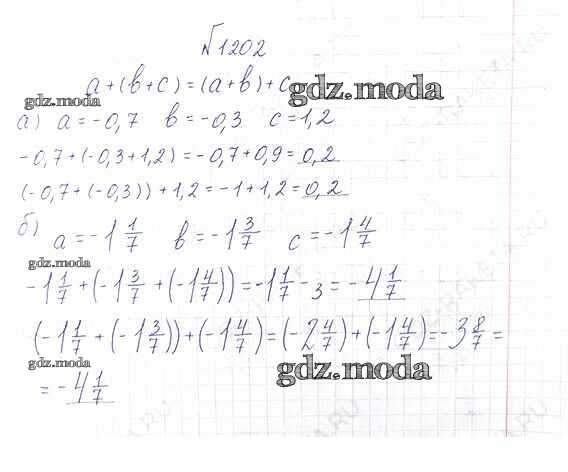 №1202
a+(b+c)=(a+b)+c
gdz.moda
gdz.moda
а) a=-0,7 b=-0,3 c=1,2
-0,7+(-0,3+1,2)=-0,7+0,9=0,2
(-0,7+(-0,3))+1,2=-1+1,2=0,2
б) a=-1 1/7 b=-1 3/7 c=-1 4/7
gdz.moda
-1 1/7+(-1 3/7+(-1 4/7))=-1 1/7-3=-4 1/7
(-1 1/7+(-1 3/7))+(-1 4/7)=(-2 4/7)+(-1 4/7)=-3 8/7=
gdz.moda
gdz.moda
=-4 1/7